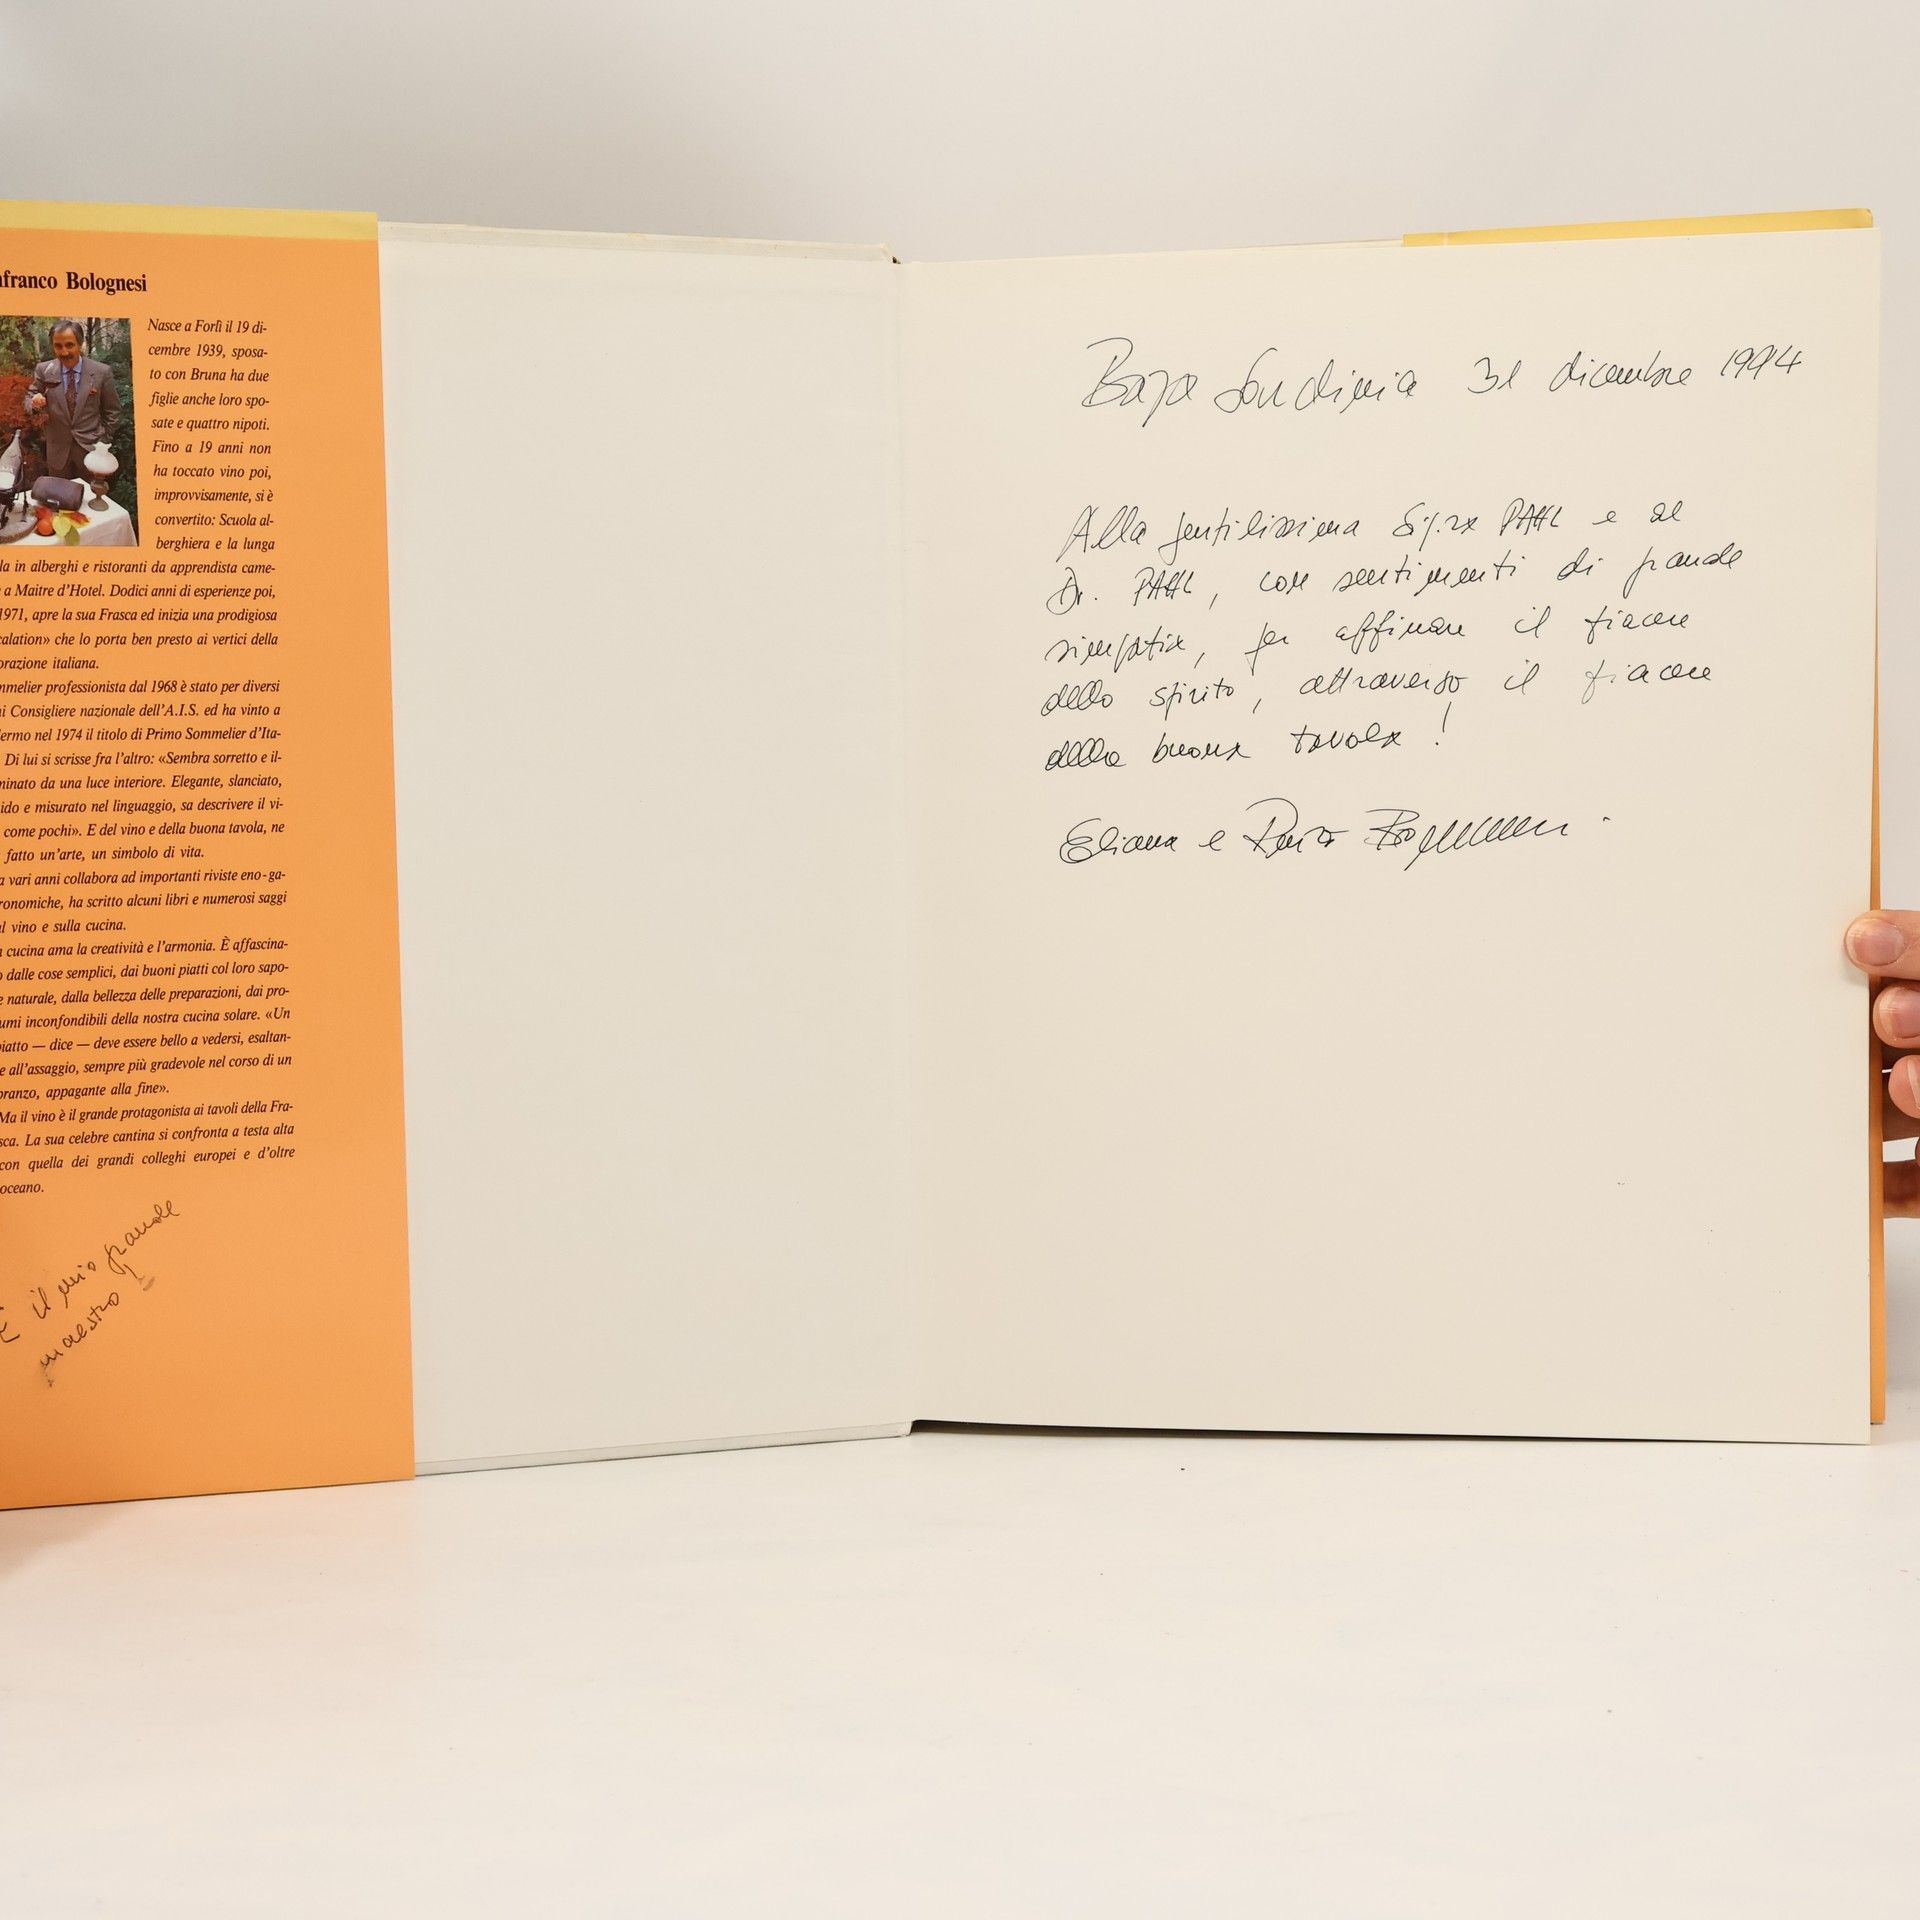 nfranco Bolognesi
Nasce a Forlì il 19 di-
cembre 1939, sposa-
to con Bruna ha due
figlie anche loro spo-
sate e quattro nipoti.
Fino a 19 anni non
ha toccato vino poi,
improvvisamente, si è
convertito: Scuola al-
berghiera e la lunga
la in alberghi e ristoranti da apprendista came-
a Maitre d'Hotel. Dodici anni di esperienze poi,
1971, apre la sua Frasca ed inizia una prodigiosa
calation» che lo porta ben presto ai vertici della
orazione italiana.
mmelier professionista dal 1968 è stato per diversi
ni Consigliere nazionale dell'A.I.S. ed ha vinto a
lermo nel 1974 il titolo di Primo Sommelier d'Ita-
Di lui si scrisse fra l'altro: «Sembra sorretto e il-
minato da una luce interiore. Elegante, slanciato,
ido e misurato nel linguaggio, sa descrivere il vi-
come pochi». E del vino e della buona tavola, ne
fatto un'arte, un simbolo di vita.
a vari anni collabora ad importanti riviste eno-ga-
ronomiche, ha scritto alcuni libri e numerosi saggi
l vino e sulla cucina.
n cucina ama la creatività e l'armonia. È affascina-
o dalle cose semplici, dai buoni piatti col loro sapo-
e naturale, dalla bellezza delle preparazioni, dai pro-
umi inconfondibili della nostra cucina solare. «Un
piatto — dice — deve essere bello a vedersi, esaltan-
e all'assaggio, sempre più gradevole nel corso di un
pranzo, appagante alla fine».
Ma il vino è il grande protagonista ai tavoli della Fra-
sca. La sua celebre cantina si confronta a testa alta
con quella dei grandi colleghi europei e d'oltre
oceano.
È il mio grande
maestro!
Baja Sardinia 31 dicembre 1994
Alla gentilissima Sig.ra PAHL e al
Dr. PAHL, con sentimenti di grande
simpatia, per affinare il piacere
dello spirito, attraverso il piacere
della buona tavola!
Eliana e